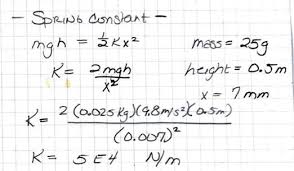 - SPRING Constant -
mgh = ½Kx²
mass = 25g
K = 2mgh / x²
height = 0.5m
x = 7mm
K = 2(0.025kg)(9.8m/s²)(0.5m) / (0.007)²
K = 5E4 N/m